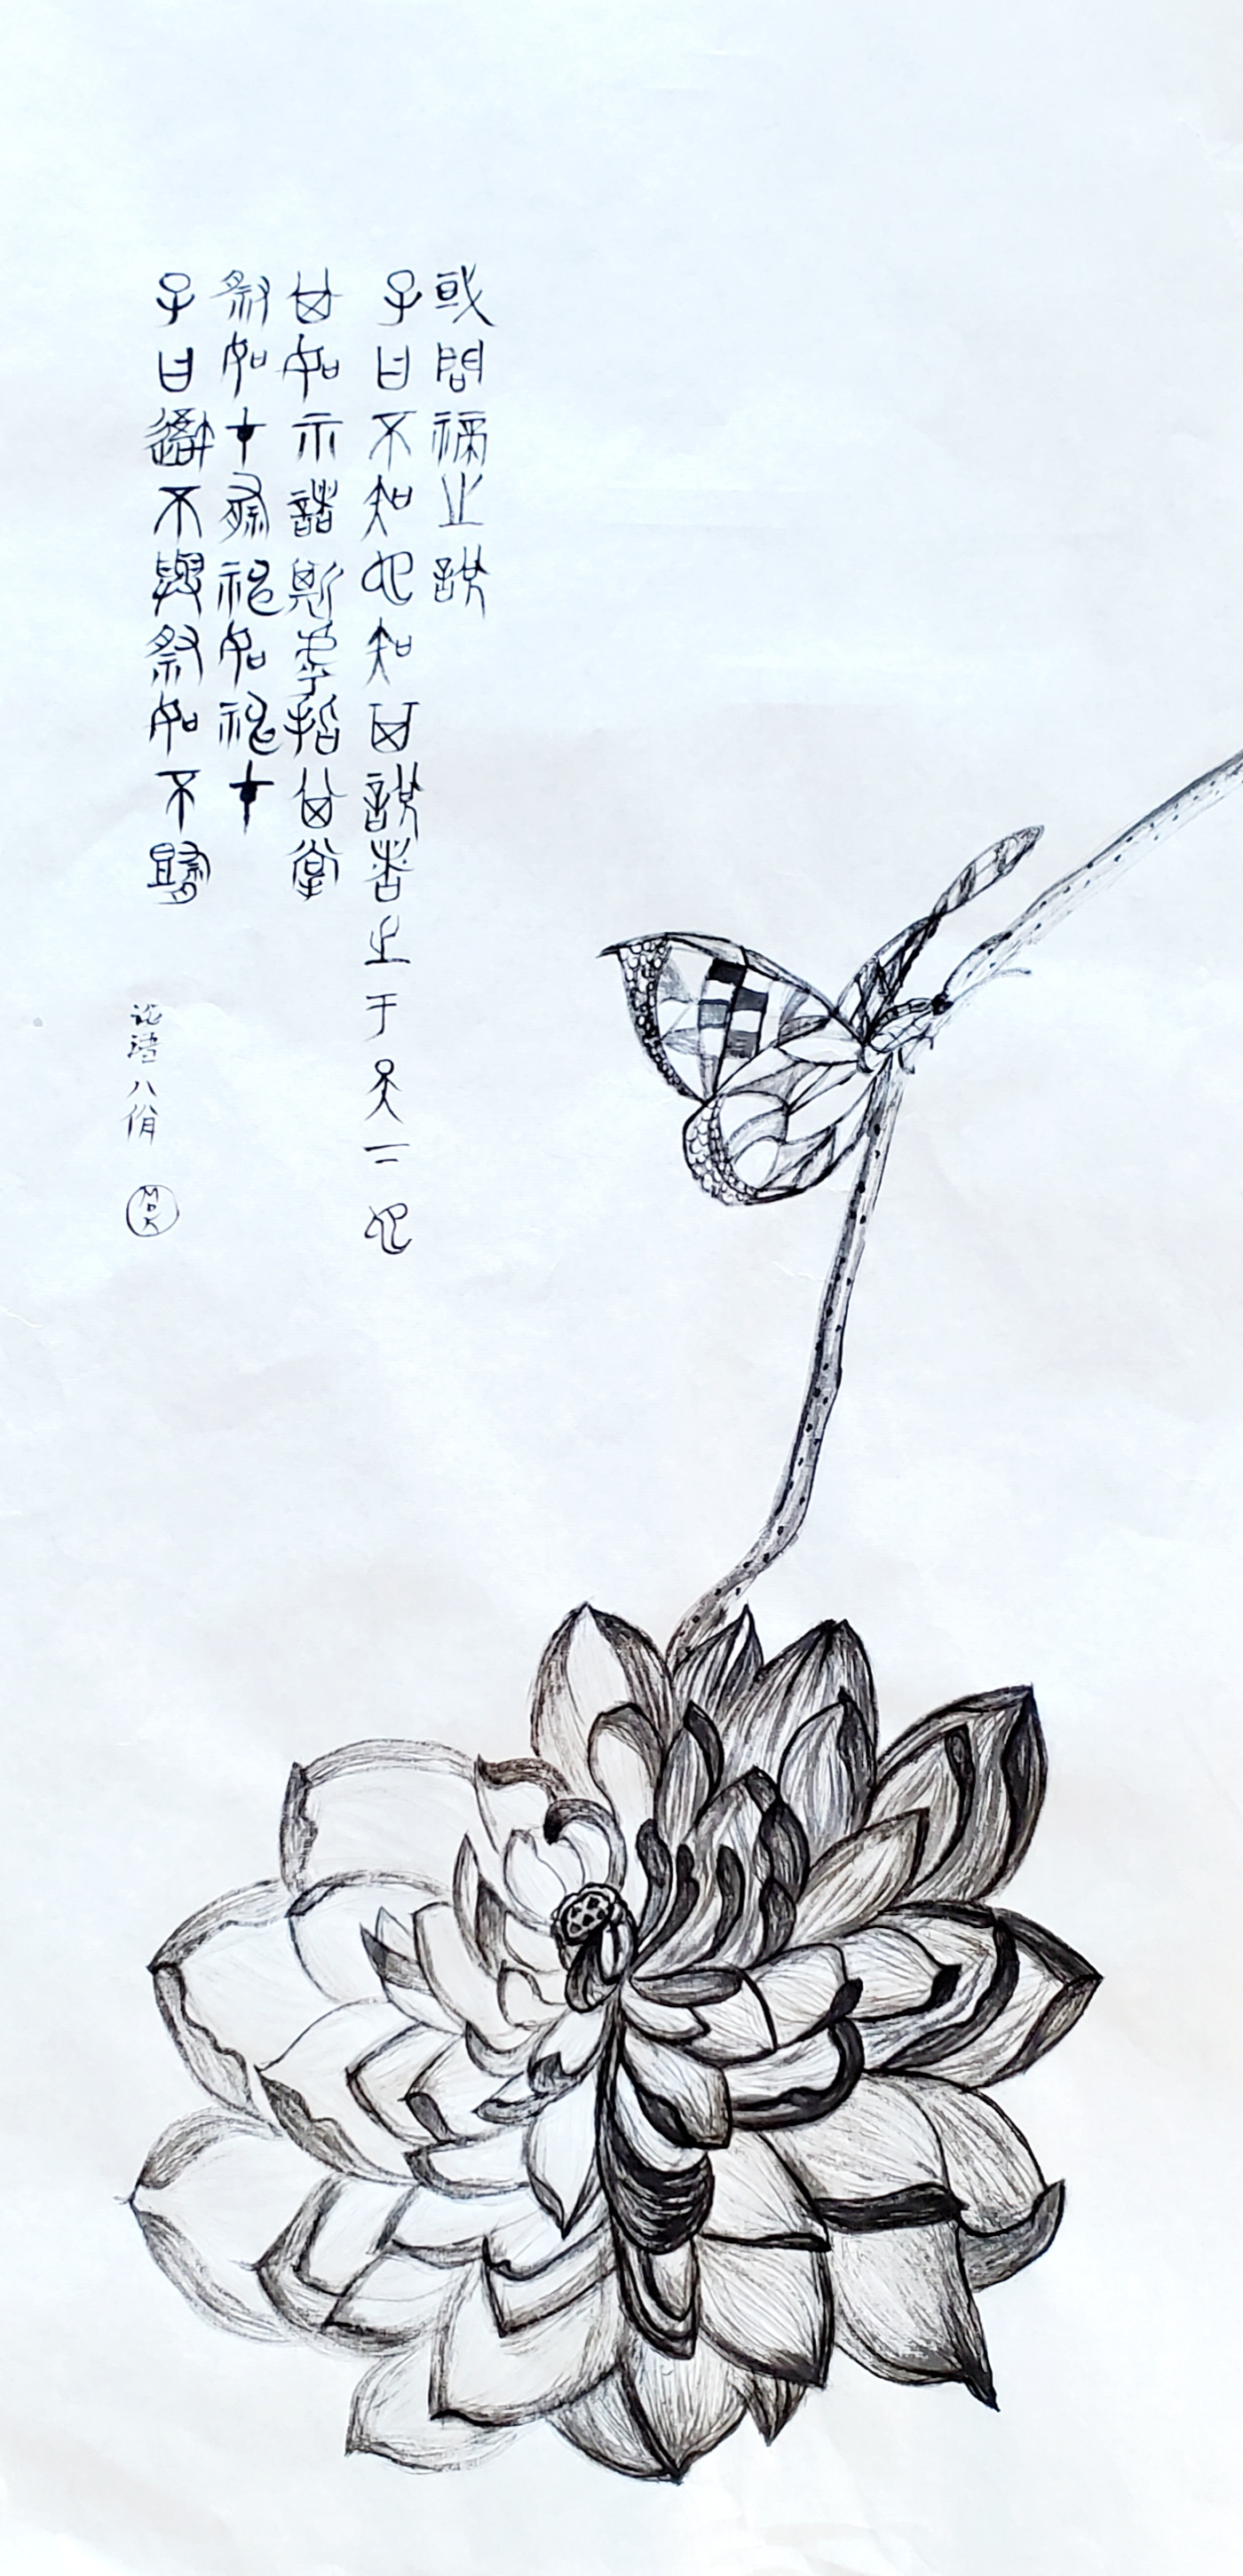 或問禘之說
子曰不知也知其說者之于天下也
其如示諸斯乎指其掌
祭如在祭神如神在
子曰吾不與祭如不祭
论语八佾